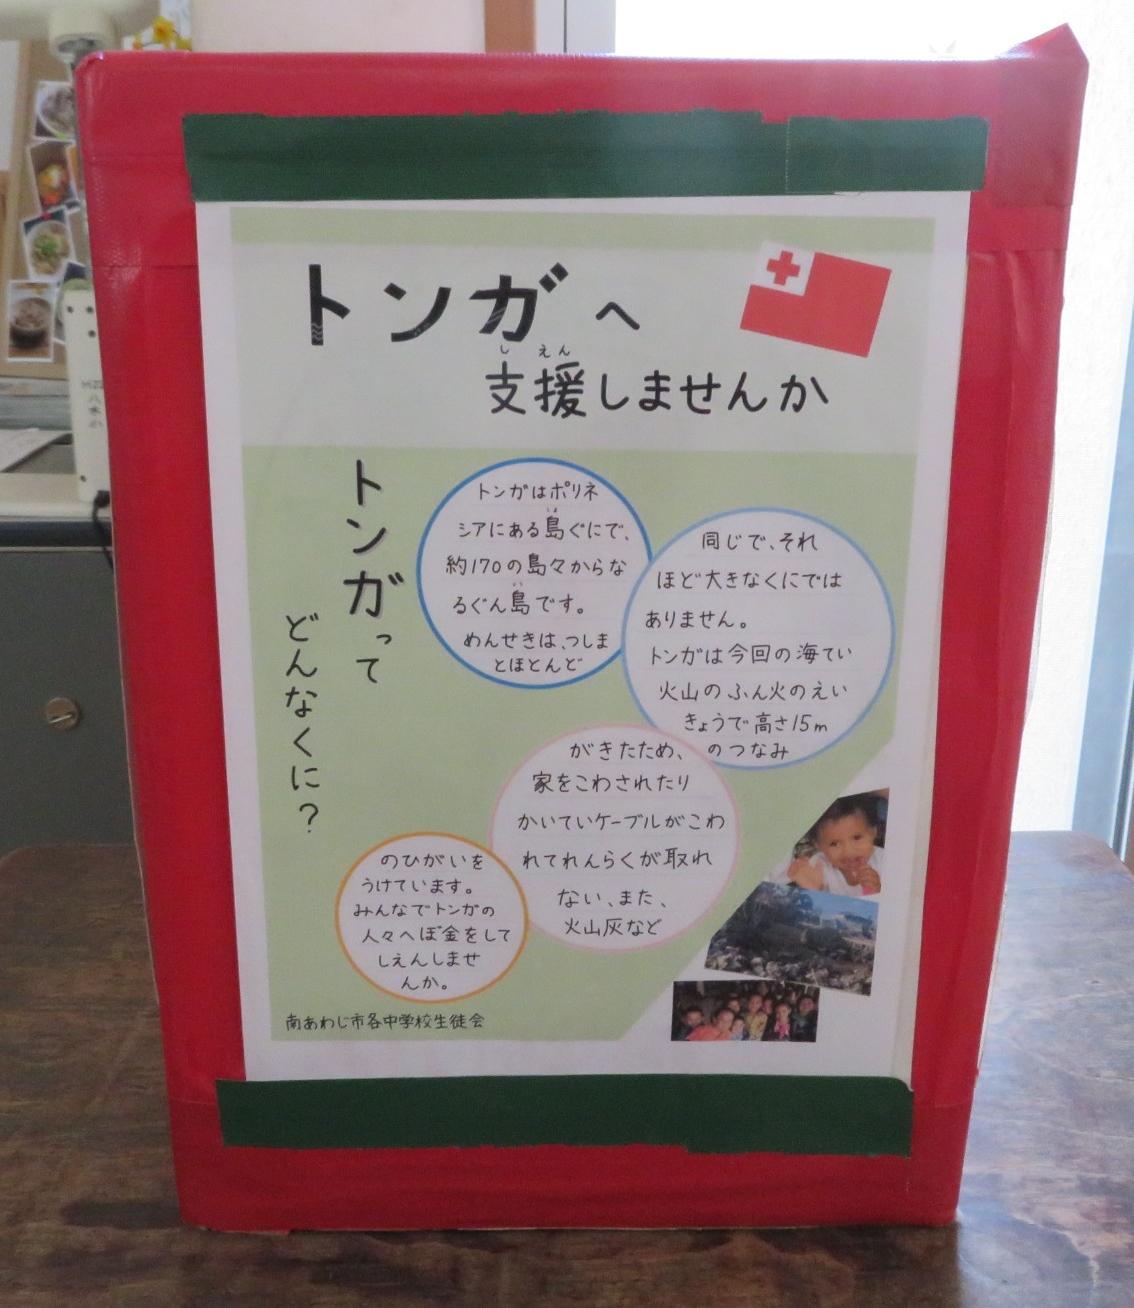 トンガへ
支援しませんか
しえん
トンガって
どんなくに？
トンガはポリネ
シアにある島ぐにで、
しま
約170の島々からな
るぐん島です。
めんせきは、つしま
とほとんど
同じで、それ
ほど大きなくにでは
ありません。
トンガは今回の海てい
火山のふん火のえい
きょうで高さ15m
のつなみ
がきたため、
家をこわされたり
かいていケーブルがこわ
れてれんらくが取れ
ない、また、
火山灰など
のひがいを
うけています。
みんなでトンガの
人々へぼ金をして
しえんしませ
んか。
南あわじ市各中学校生徒会